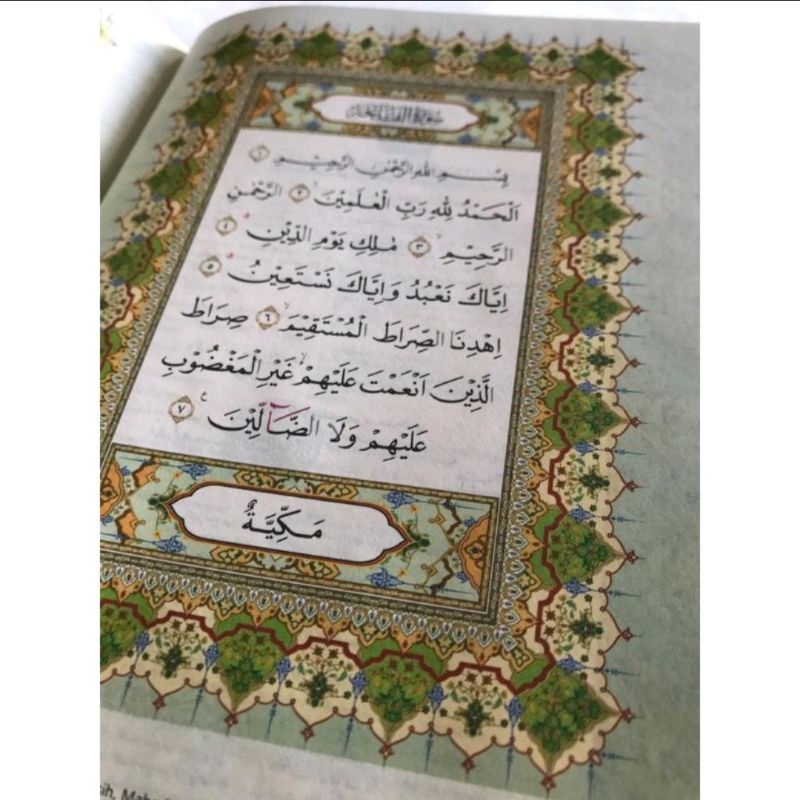 سُوْرَةُ الْفَاتِحَةِ
بِسْمِ اللّٰهِ الرَّحْمٰنِ الرَّحِيْمِ ١
اَلْحَمْدُ لِلّٰهِ رَبِّ الْعٰلَمِيْنَۙ ٢ الرَّحْمٰنِ
الرَّحِيْمِۙ ٣ مٰلِكِ يَوْمِ الدِّيْنِۗ ٤
اِيَّاكَ نَعْبُدُ وَاِيَّاكَ نَسْتَعِيْنُۗ ٥
اِهْدِنَا الصِّرَاطَ الْمُسْتَقِيْمَۙ ٦ صِرَاطَ
الَّذِيْنَ اَنْعَمْتَ عَلَيْهِمْۙ غَيْرِ الْمَغْضُوْبِ
عَلَيْهِمْ وَلَا الضَّاۤلِّيْنَ ٧
مَكِّيَّةٌ